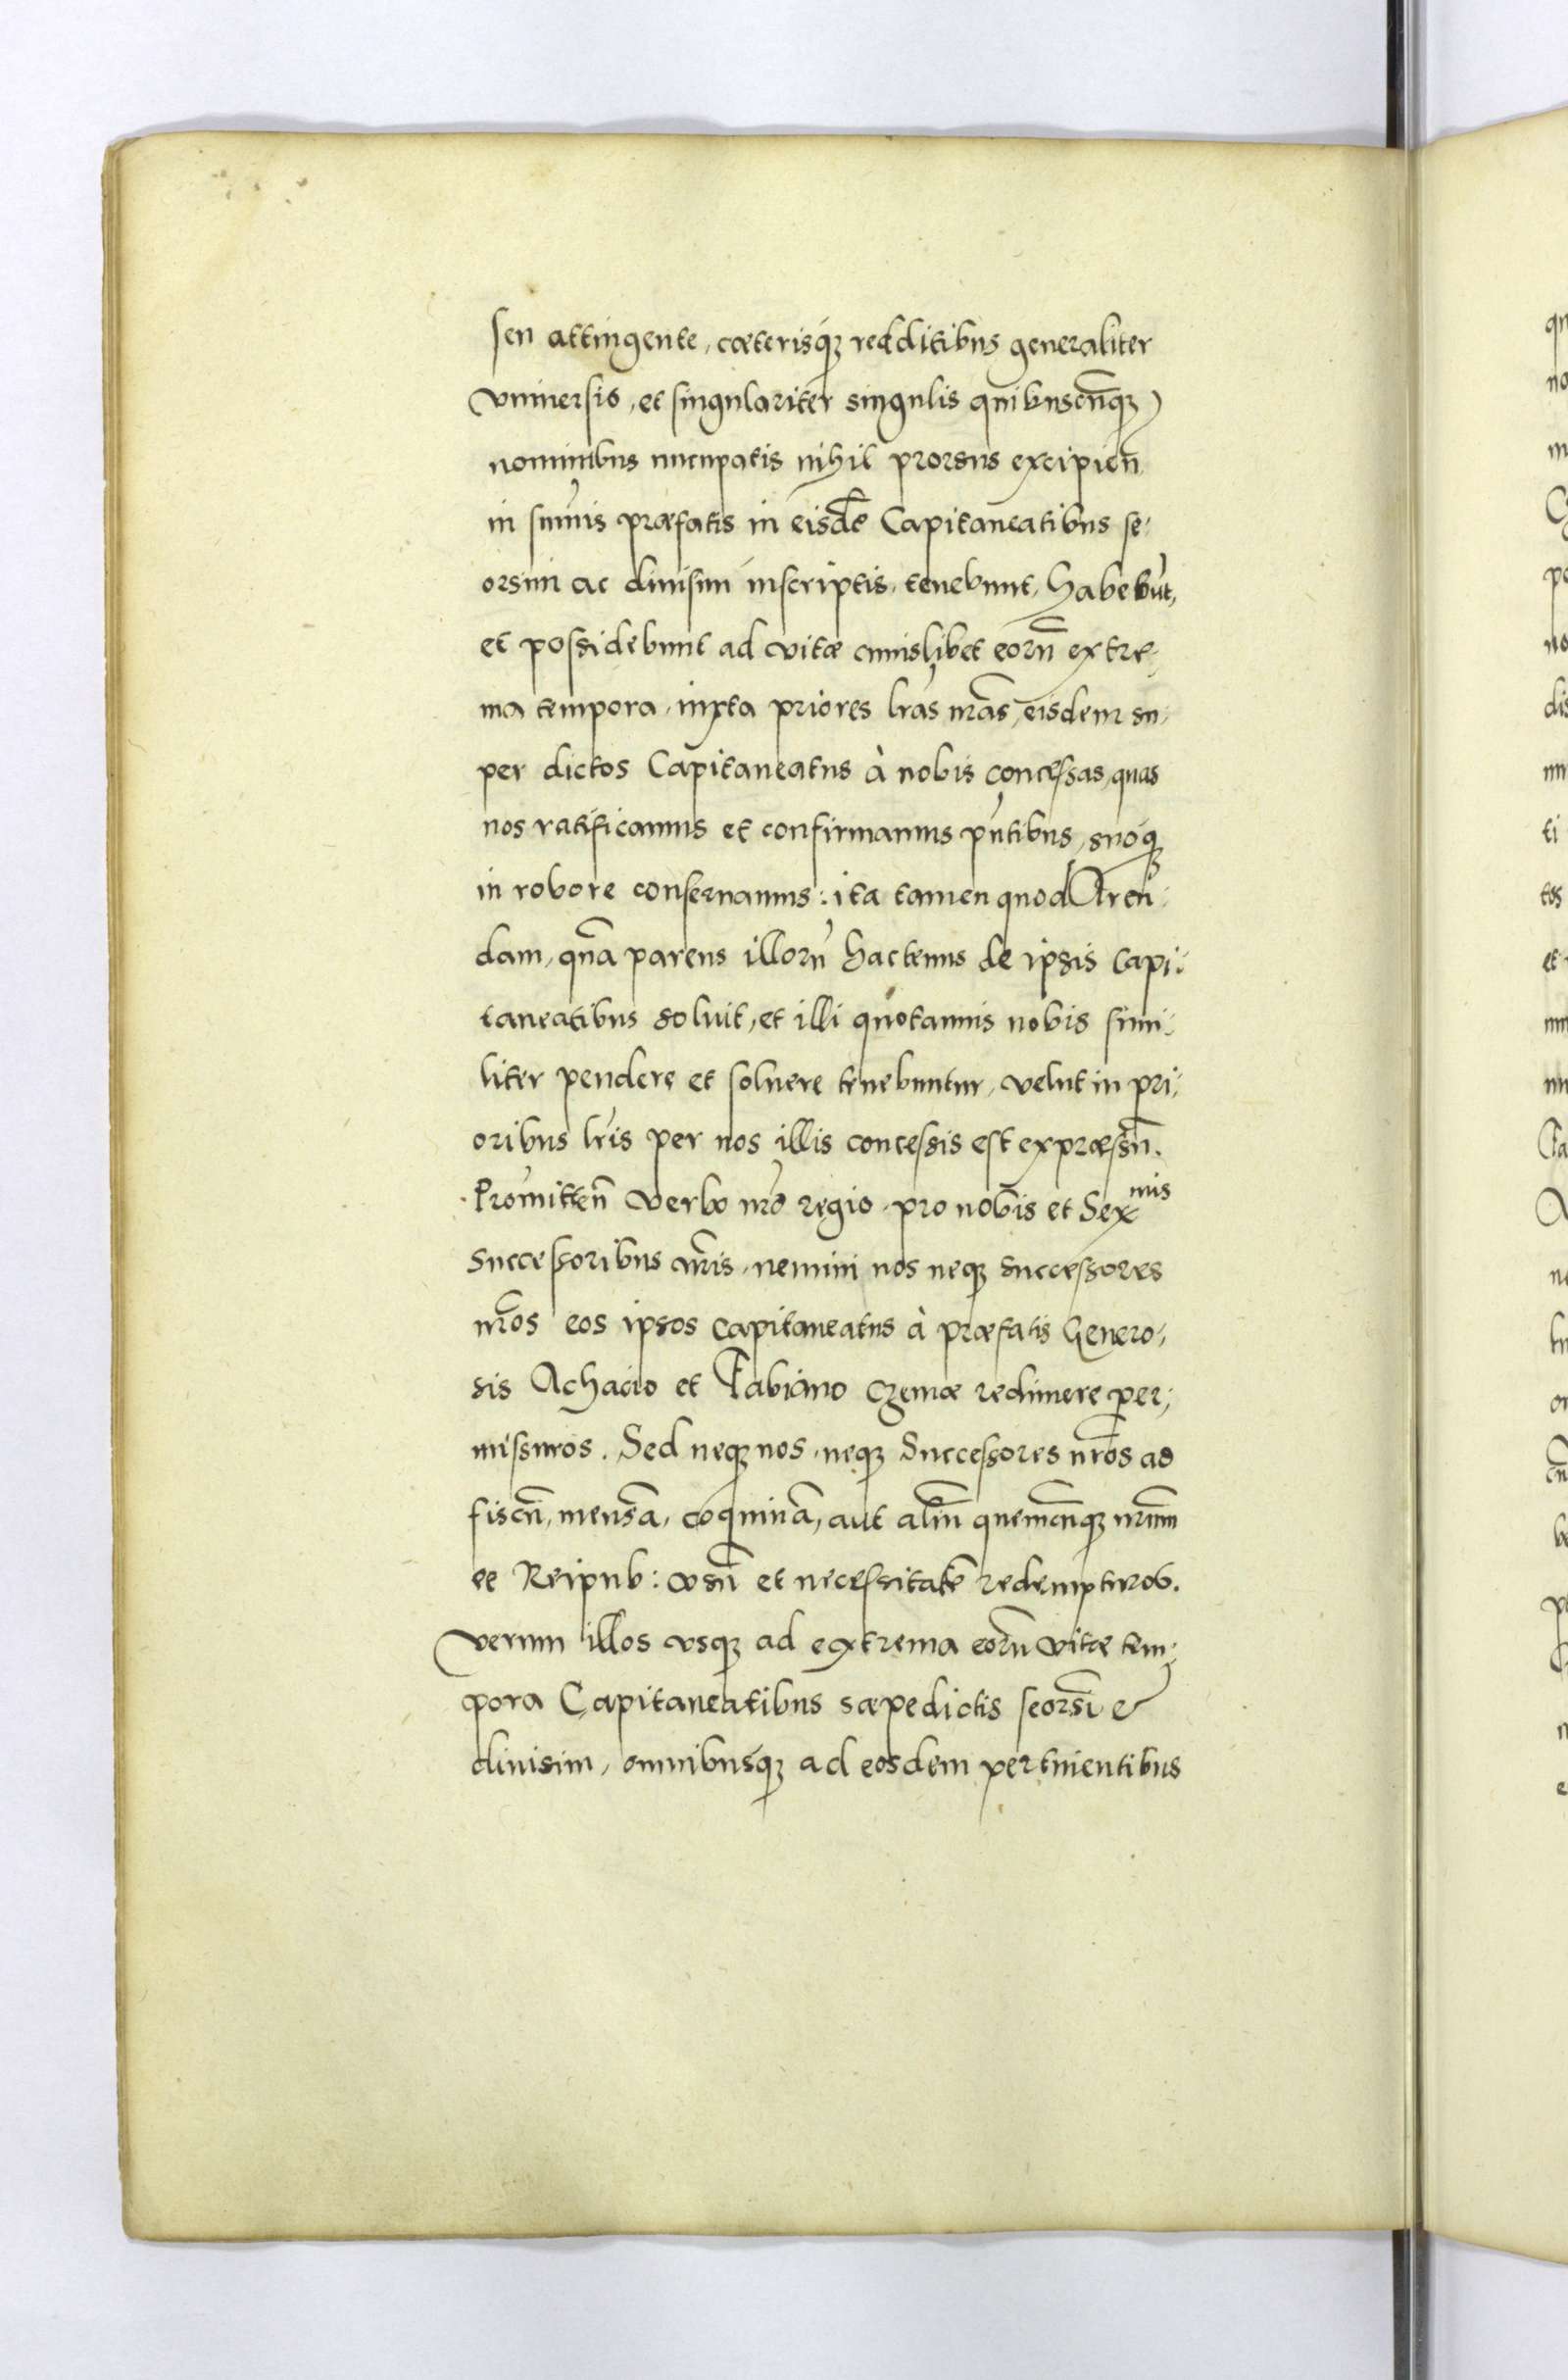 seu attingente, cæterisq́ꝫ redditibus generaliter
vniuersis, et singulariter singulis quibuscūqꝫ
nominibus nuncupatis nihil prorsus excipien̄
in sum̄is præfatis in eisdē Capitaneatibus se-
orsim ac diuisim inscriptis, tenebunt, habebūt,
et possidebunt ad vitæ cuiuslibet eorū extre-
ma tempora, iuxta priores lr̄as nr̄as, eisdem su-
per dictos Capitaneatus à nobis concessas, quas
nos ratificamus et confirmamus pn̄tibus, suoq́ꝫ
in robore conseruamus: ita tamen quod Aren-
dam, quā parens illorū hactenus de ipsis Capi-
taneatibus soluit, et illi quotannis nobis simi-
liter pendere et soluere tenebuntur, velut in pri-
oribus lr̄is per nos illis concessis est expræssū.
Promitten̄ verbo nr̄o regio, pro nobis et Serᵐⁱˢ
Successoribus nr̄is, nemini nos neqꝫ Successores
nr̄os eos ipsos Capitaneatus à præfatis Genero-
sis Achacio et Fabiano Czemæ redimere per-
missuros. Sed neqꝫ nos, neqꝫ Successores nr̄os ad
fiscū, mensā, coquinā, aut aliū quemcūqꝫ nr̄um
et Reipub: vsū et necessitatē redempturos.
Verum illos vsqꝫ ad extrema eorū vitæ tem-
pora Capitaneatibus sæpedictis seorsī &
diuisim, omnibusq́ꝫ ad eosdem pertinentibus